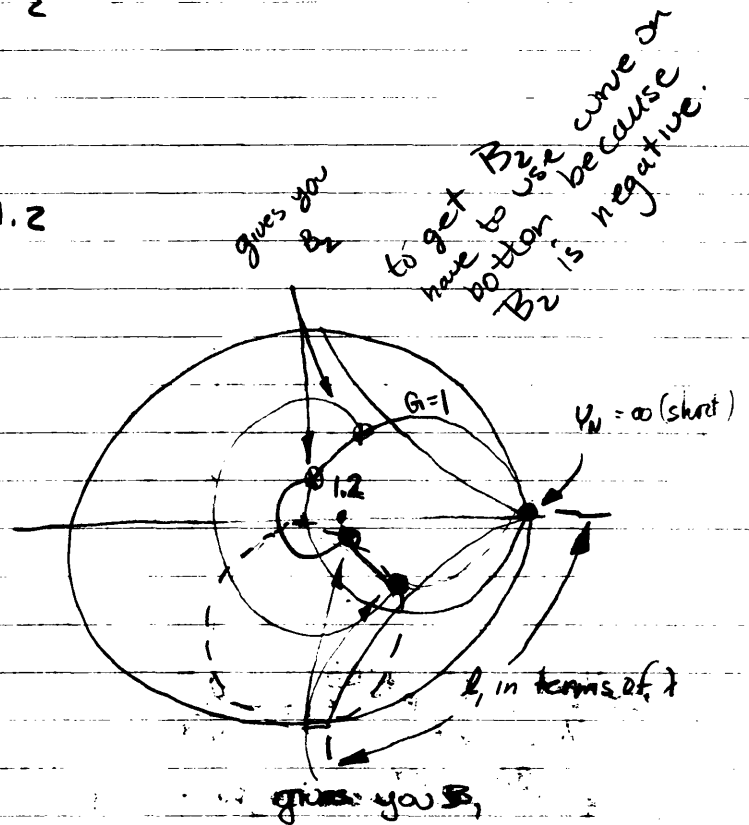 2
1.2
gives you
B2
to get B2
have to use curve on
bottom because
B2 is negative.
G=1
YN = ∞ (short)
1.2
l, in terms of λ
gives you B,